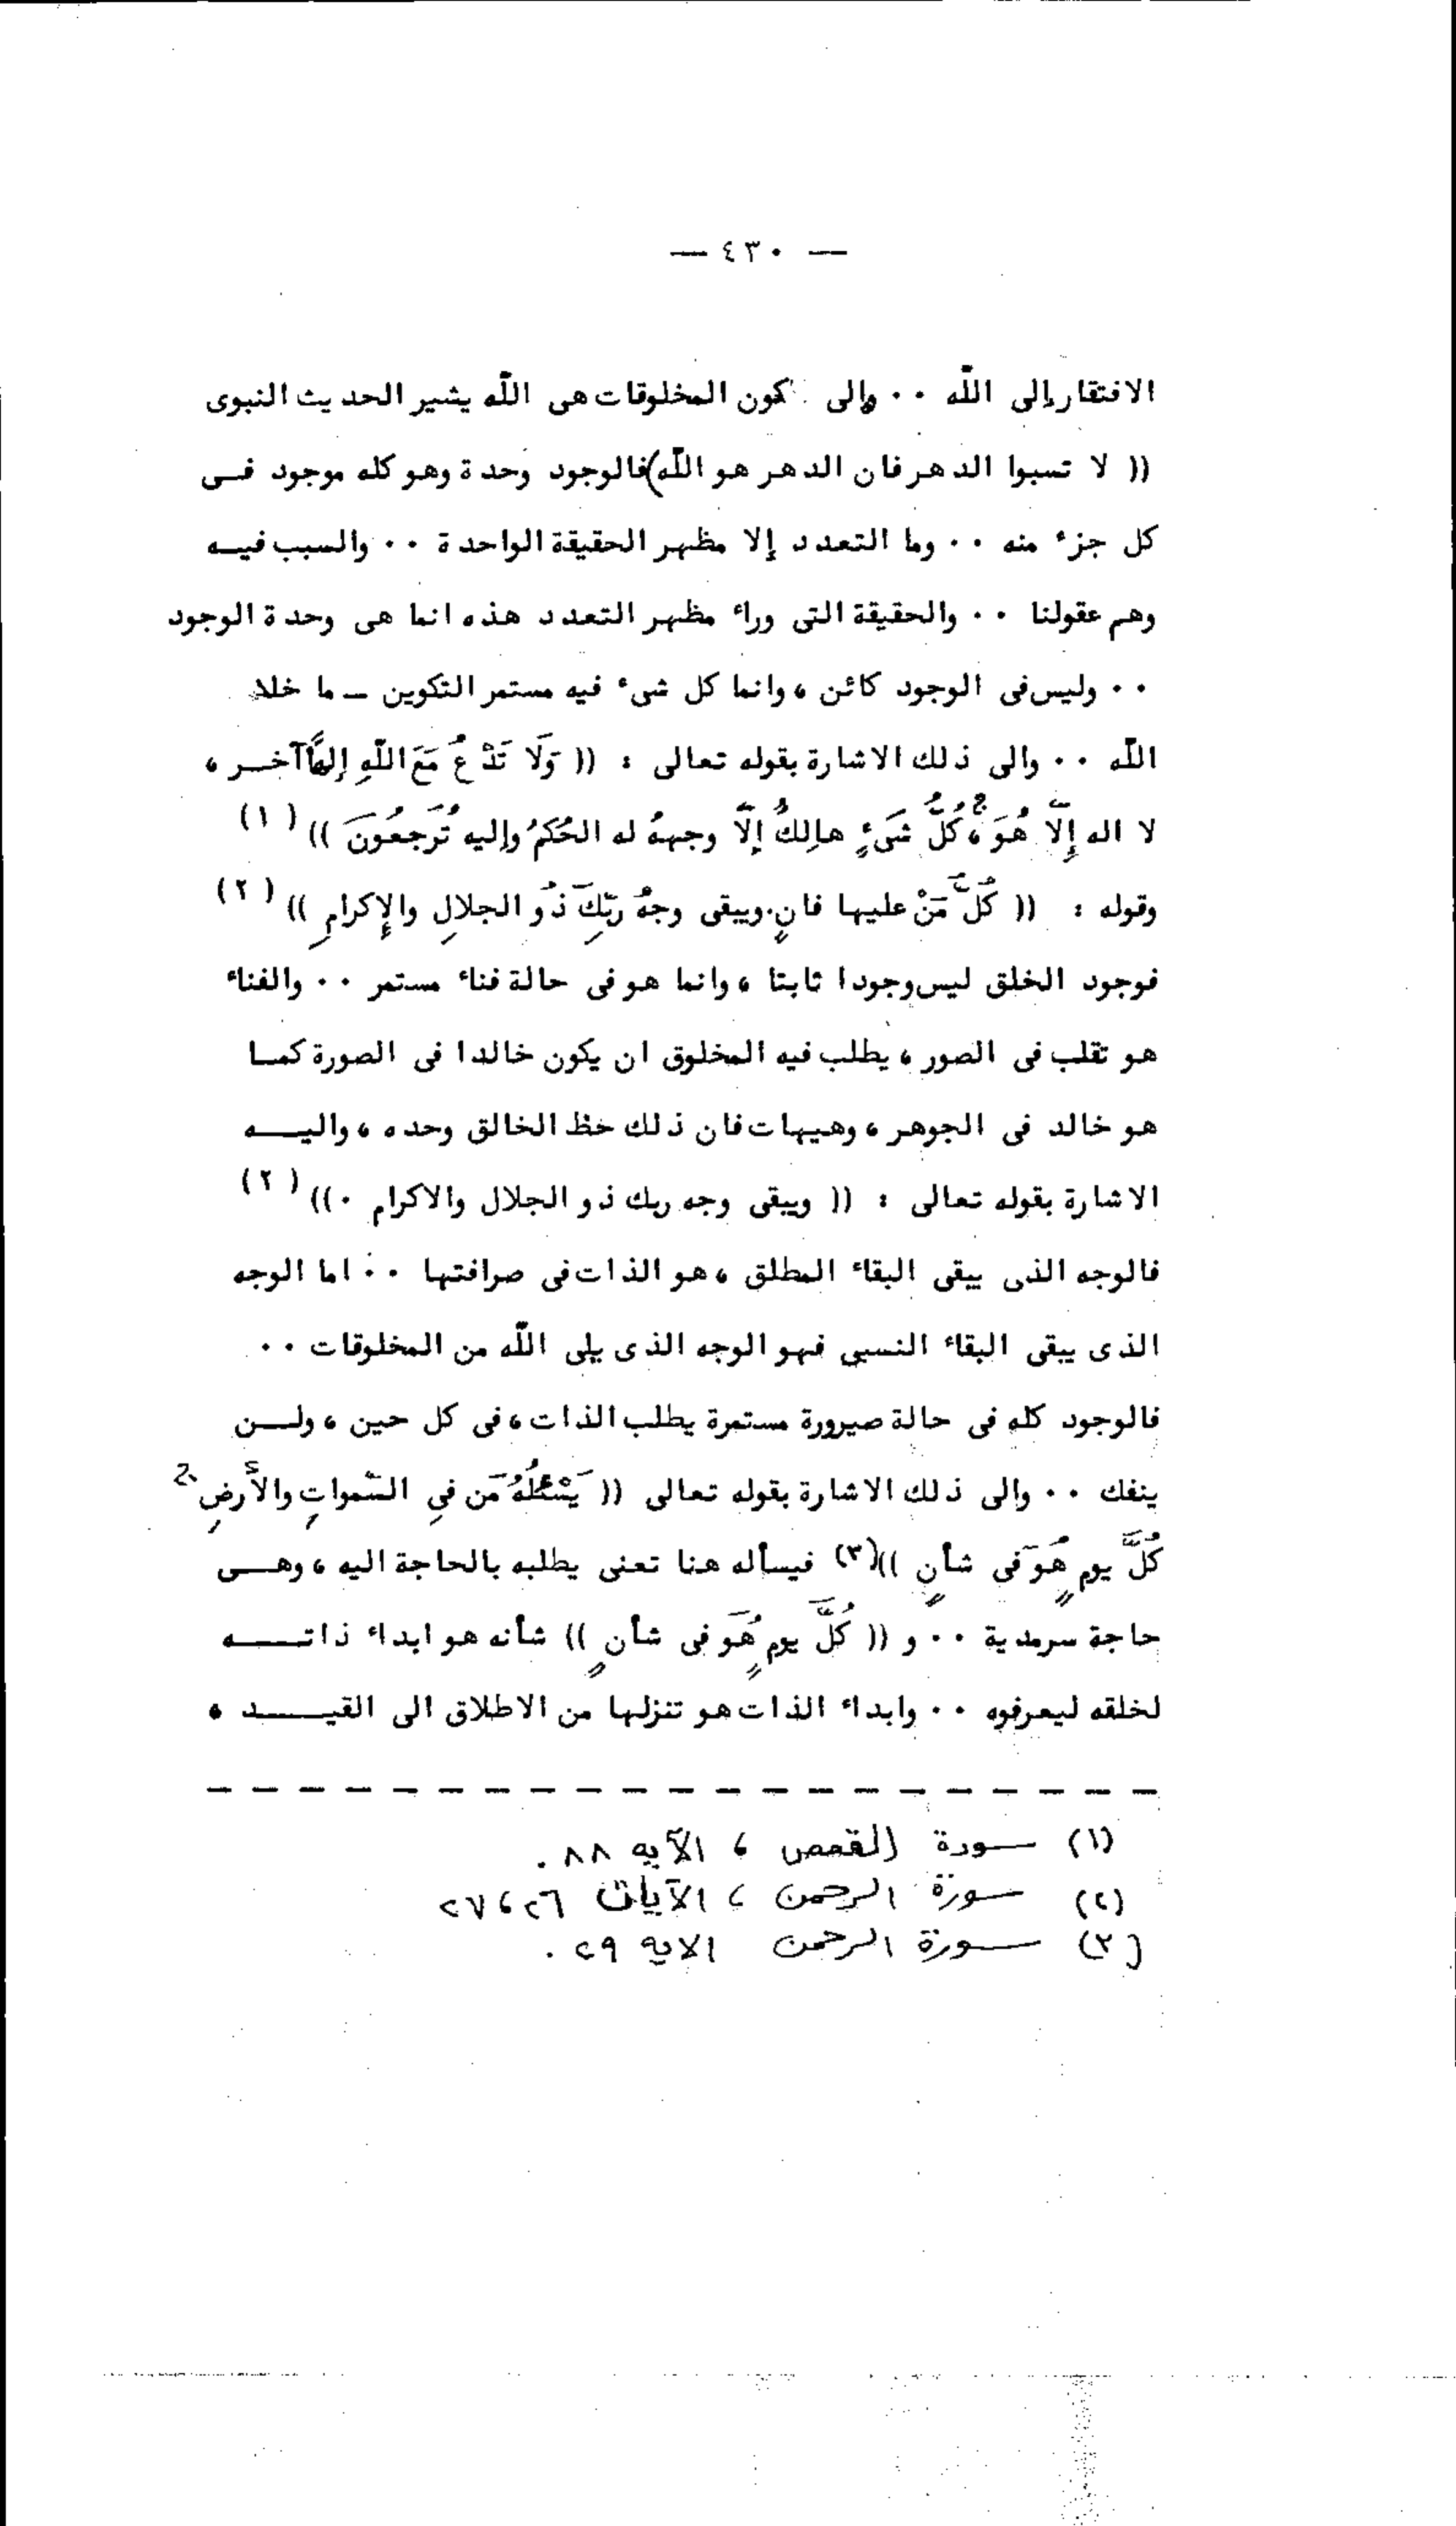 — ٤٣٠ —
الافتقار إلى الله ٠٠ وإلى كون المخلوقات هى الله يشير الحديث النبوى
(( لا تسبوا الدهر فان الدهر هو الله) فالوجود وحدة وهو كله موجود فى
كل جزء منه ٠٠ وما التعدد إلا مظهر الحقيقة الواحدة ٠٠ والسبب فيه
وهم عقولنا ٠٠ والحقيقة التى وراء مظهر التعدد هذه انما هى وحدة الوجود
٠٠ وليس فى الوجود كائن ، وانما كل شىء فيه مستمر التكوين – ما خلا
الله ٠٠ والى ذلك الاشارة بقوله تعالى : (( وَلَا تَدْعُ مَعَ اللّهِ إلهًا آخر ،
لا اله إِلَّا هُوَ ، كُلُّ شَىْءٍ هالِكٌ إلَّا وجههُ له الحُكمُ وإليه تُرجَعُونَ )) (١)
وقوله : (( كُلُّ مَنْ عليها فانٍ. ويبقى وجهُ ربِّكَ ذُو الجلالِ والإكرامِ )) (٢)
فوجود الخلق ليس وجودا ثابتا ، وانما هو فى حالة فناء مستمر ٠٠ والفناء
هو تقلب فى الصور ، يطلب فيه المخلوق ان يكون خالدا فى الصورة كما
هو خالد فى الجوهر ، وهيهات فان ذلك حظ الخالق وحده ، واليه
الاشارة بقوله تعالى : (( ويبقى وجه ربك ذو الجلال والاكرام ٠)) (٢)
فالوجه الذى يبقى البقاء المطلق ، هو الذات فى صرافتها ٠٠ اما الوجه
الذى يبقى البقاء النسبى فهو الوجه الذى يلى الله من المخلوقات ٠٠
فالوجود كله فى حالة صيرورة مستمرة يطلب الذات ، فى كل حين ، ولن
ينفك ٠٠ والى ذلك الاشارة بقوله تعالى (( يَسْئَلُهُ مَن فىِ السَّمواتِ والأَرضِ
كُلَّ يومٍ هُوَ فى شأنٍ ))(٣) فيسأله هنا تعنى يطلبه بالحاجة اليه ، وهى
حاجة سرمدية ٠٠ و (( كُلَّ يومٍ هُوَ فى شأنٍ )) شأنه هو ابداء ذاته
لخلقه ليعرفوه ٠٠ وابداء الذات هو تنزلها من الاطلاق الى القيد ٠
(١) سورة القصص ، الآيه ٨٨ .
(٢) سورة الرحمن ، الآيات ٢٦ ، ٢٧
(٣) سورة الرحمن الايه ٢٩ .